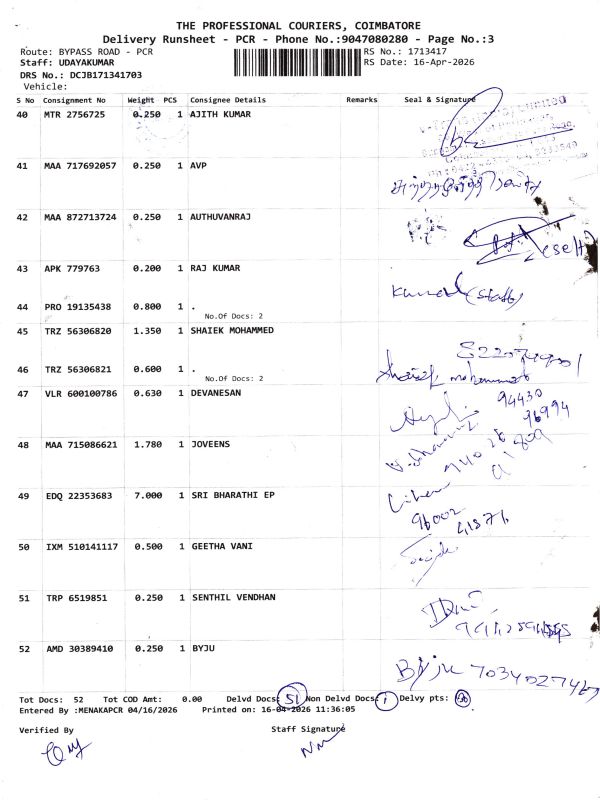 THE PROFESSIONAL COURIERS, COIMBATORE
Delivery Runsheet - PCR - Phone No.:9047080280 - Page No.:3
Route: BYPASS ROAD - PCR RS No.: 1713417
Staff: UDAYAKUMAR RS Date: 16-Apr-2026
DRS No.: DCJB171341703
Vehicle:
S No Consignment No Weight PCS Consignee Details Remarks Seal & Signature
40 MTR 2756725 0.250 1 AJITH KUMAR
41 MAA 717692057 0.250 1 AVP
42 MAA 872713724 0.250 1 AUTHUVANRAJ
(self)
43 APK 779763 0.200 1 RAJ KUMAR
(staff)
44 PRO 19135438 0.800 1 .
No.Of Docs: 2
45 TRZ 56306820 1.350 1 SHAIEK MOHAMMED
46 TRZ 56306821 0.600 1 .
No.Of Docs: 2
47 VLR 600100786 0.630 1 DEVANESAN
94430
96994
48 MAA 715086621 1.780 1 JOVEENS
49 EDQ 22353683 7.000 1 SRI BHARATHI EP
96002
41371
50 IXM 510141117 0.500 1 GEETHA VANI
51 TRP 6519851 0.250 1 SENTHIL VENDHAN
52 AMD 30389410 0.250 1 BYJU
Byju 7034027467
Tot Docs: 52 Tot COD Amt: 0.00 Delvd Docs: 51 Non Delvd Docs: 1 Delvy pts:
Entered By :MENAKAPCR 04/16/2026 Printed on: 16-04-2026 11:36:05
Verified By Staff Signature